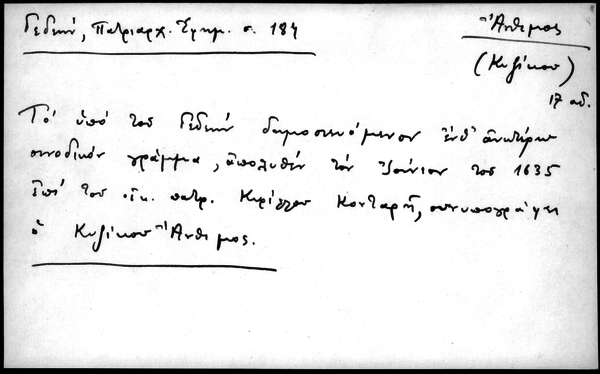 Γεδεών, Πατριαρχ. Ἐφημ. σ. 184
Ἄνθιμος
(Κυζίκου)
17 αἰ.
Τό ὑπό τοῦ Γεδεών δημοσιευόμενον ἔνθ' ἀνωτέρω
συνοδικόν γράμμα, ἀπολυθέν τόν Ἰούνιον τοῦ 1635
ἐπί τοῦ οἰκ. πατρ. Κυρίλλου Κονταρῆ, συνυπογράφει
ὁ Κυζίκου Ἄνθιμος.